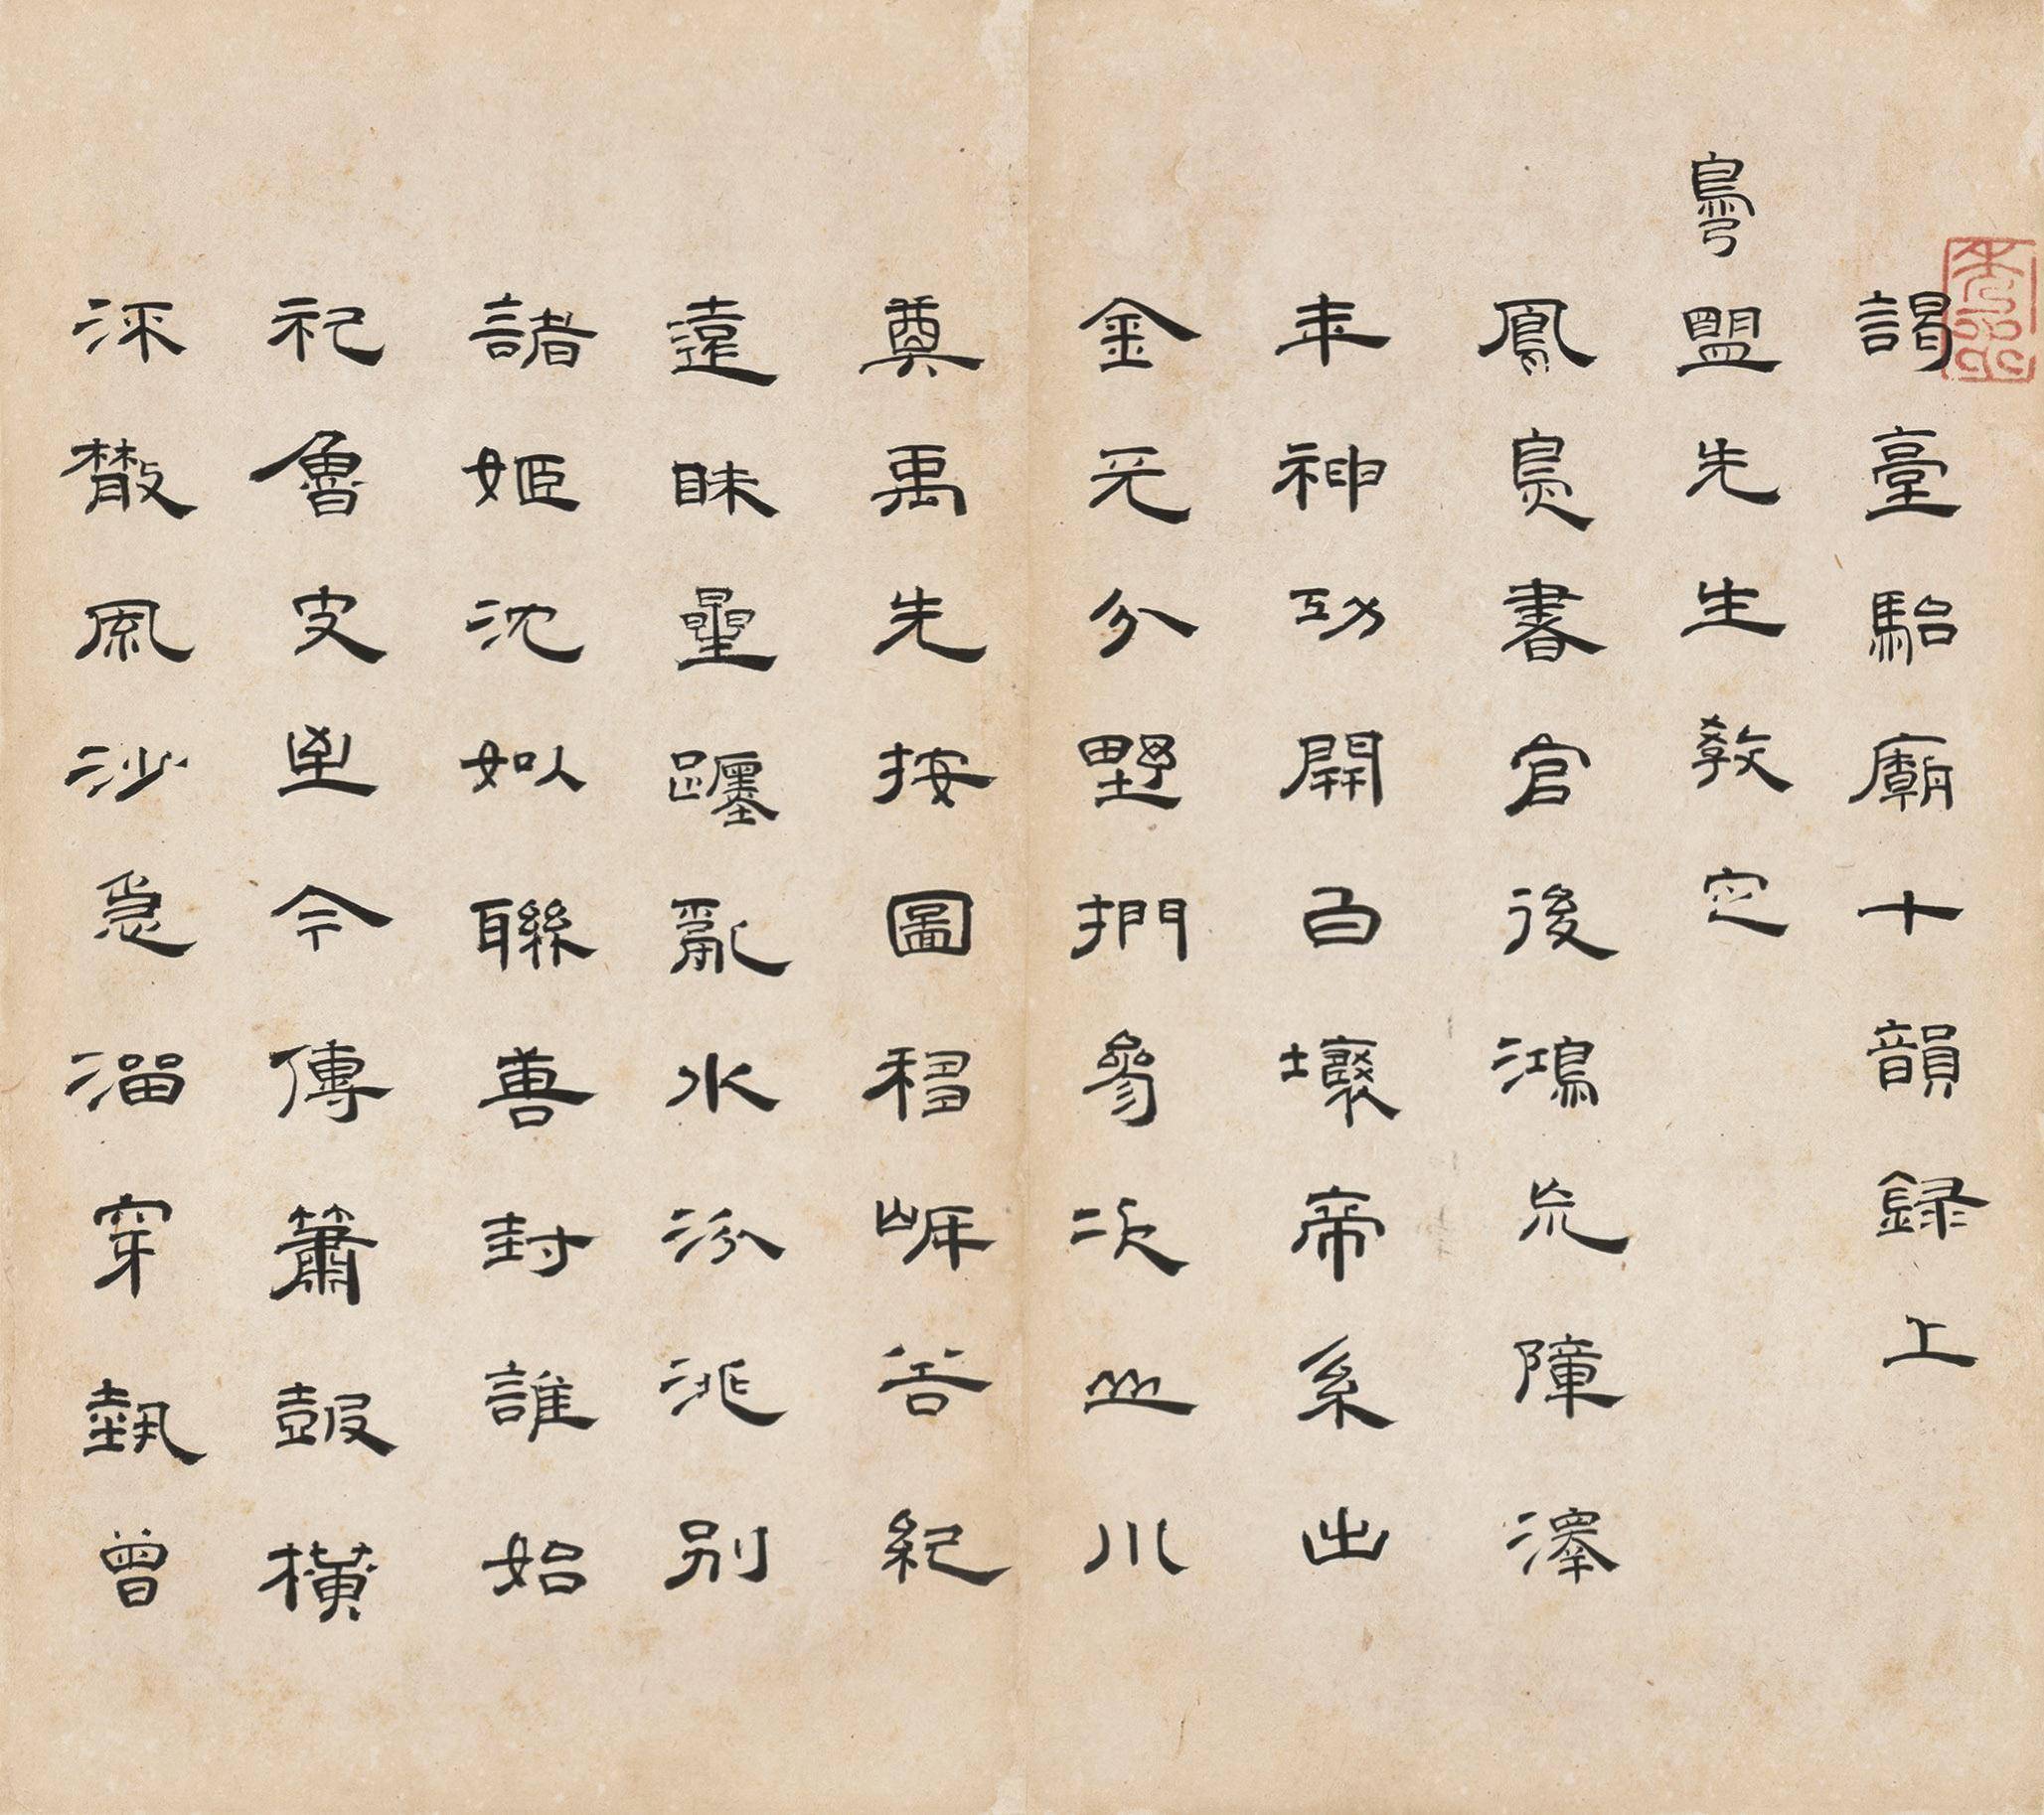 謁臺駘廟十韻録上
鳧盟先生教定
鳳鳥書官後鴻荒障澤
年神功開白壤帝系出
金天分野捫參次山川
奠禹先按圖移岸谷紀
遠昧星躔亂水汾洮別
諸姬沈姒聯善封誰始
祀魯史至今傳簫鼓橫
派散風沙急溜穿埶曾